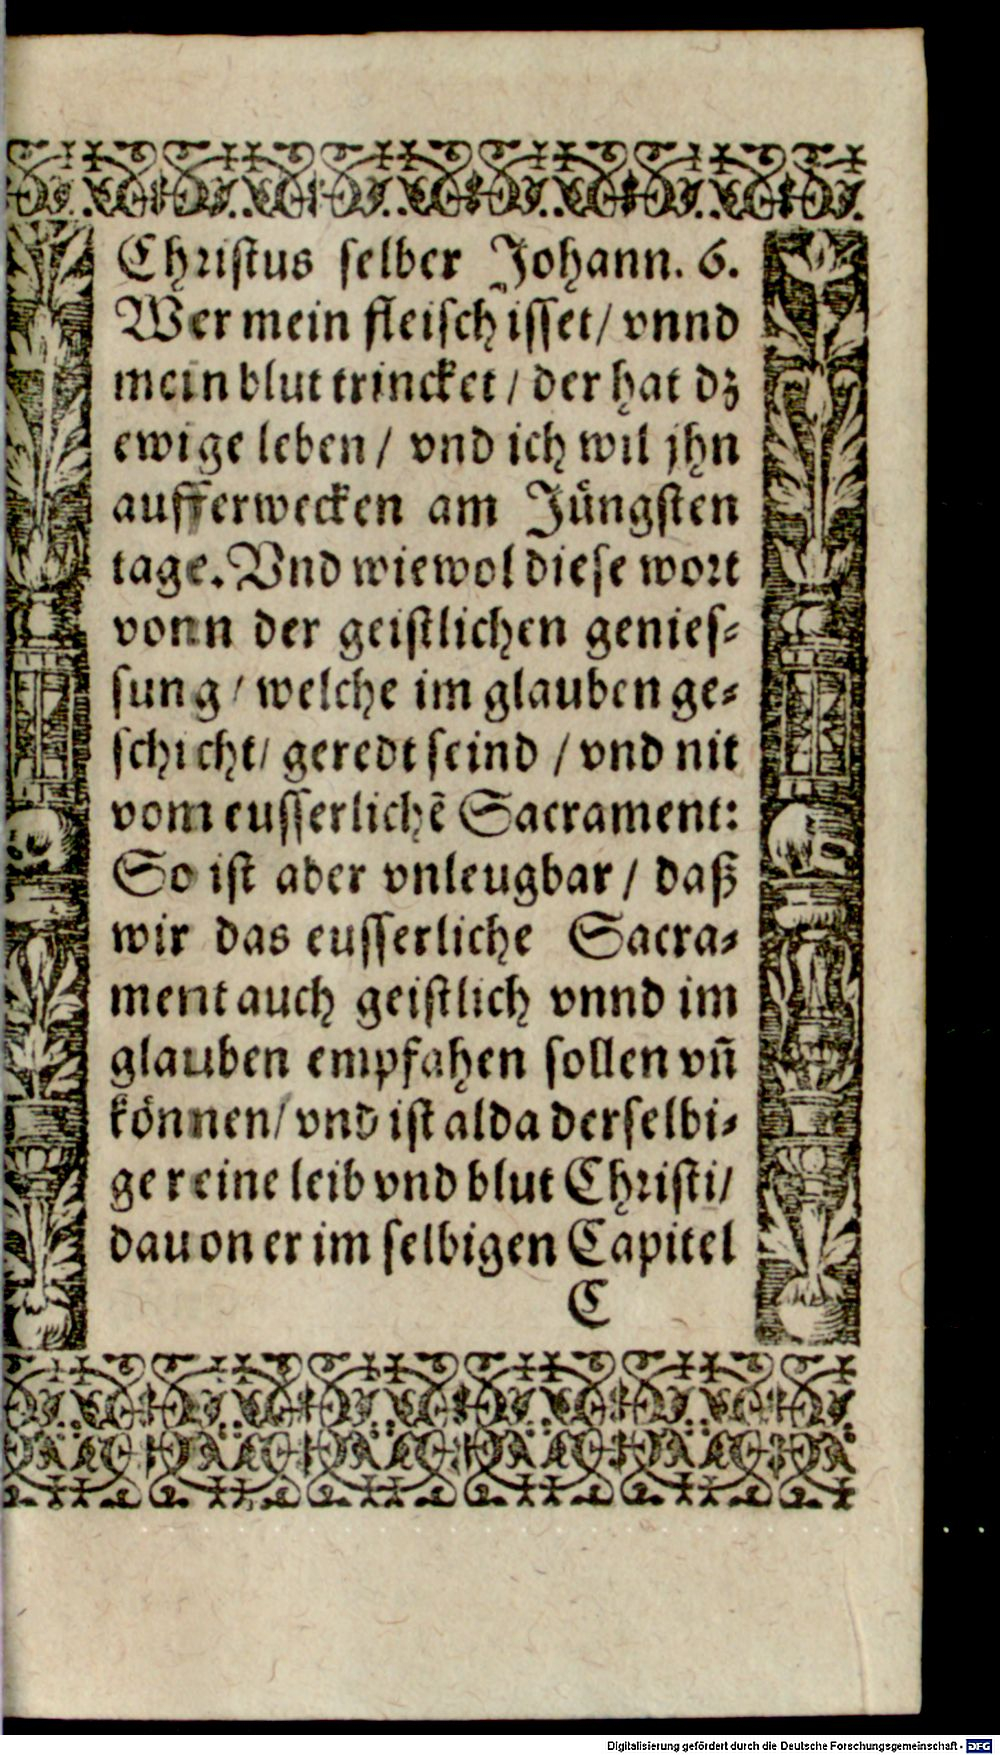 Christus selber Johann. 6.
Wer mein fleisch isset/ vnnd
mein blut trincket / der hat dz
ewige leben/ vnd ich wil jhn
aufferwecken am Jüngsten
tage. Vnd wiewol diese wort
vonn der geistlichen genies-
sung / welche im glauben ge-
schicht/ geredt seind / vnd nit
vom eusserlichẽ Sacrament:
So ist aber vnleugbar / daß
wir das eusserliche Sacra-
ment auch geistlich vnnd im
glauben empfahen sollen vñ
können/ vnd ist alda derselbi-
ge reine leib vnd blut Christi/
dauon er im selbigen Capitel
C
Digitalisierung gefördert durch die Deutsche Forschungsgemeinschaft - DFG